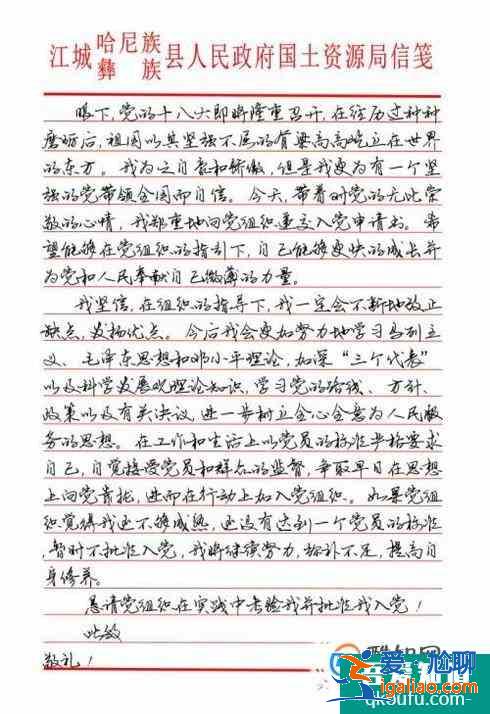 江城哈尼族彝族县人民政府国土资源局信笺
眼下,党的十八大即将隆重召开,在经历过种种
磨砺后,祖国以其坚强不屈的脊梁高高屹立在世界
的东方。我为之自豪和骄傲,但是我更为有一个坚
强的党带领全国而自信。今天,带着对党的无比崇
敬的心情,我郑重地向党组织递交入党申请书。希
望能够在党组织的指引下,自己能够更快的成长并
为党和人民奉献自己微薄的力量。
我坚信,在组织的指导下,我一定会不断地改正
缺点,发扬优点。今后我会更加努力地学习马列主
义、毛泽东思想和邓小平理论,加深“三个代表”
以及科学发展观理论知识,学习党的路线、方针、
政策以及有关决议,进一步树立全心全意为人民服
务的思想。在工作和生活上以党员的标准严格要求
自己,自觉接受党员和群众的监督,争取早日在思想
上向党靠拢,进而在行动上加入党组织。如果党组
织觉得我还不够成熟,还没有达到一个党员的标准,
暂时不批准入党,我将继续努力,弥补不足,提高自
身修养。
恳请党组织在实践中考验我并批准我入党!
此致
敬礼!
爱尬聊
igaliao.com
qk5208.com